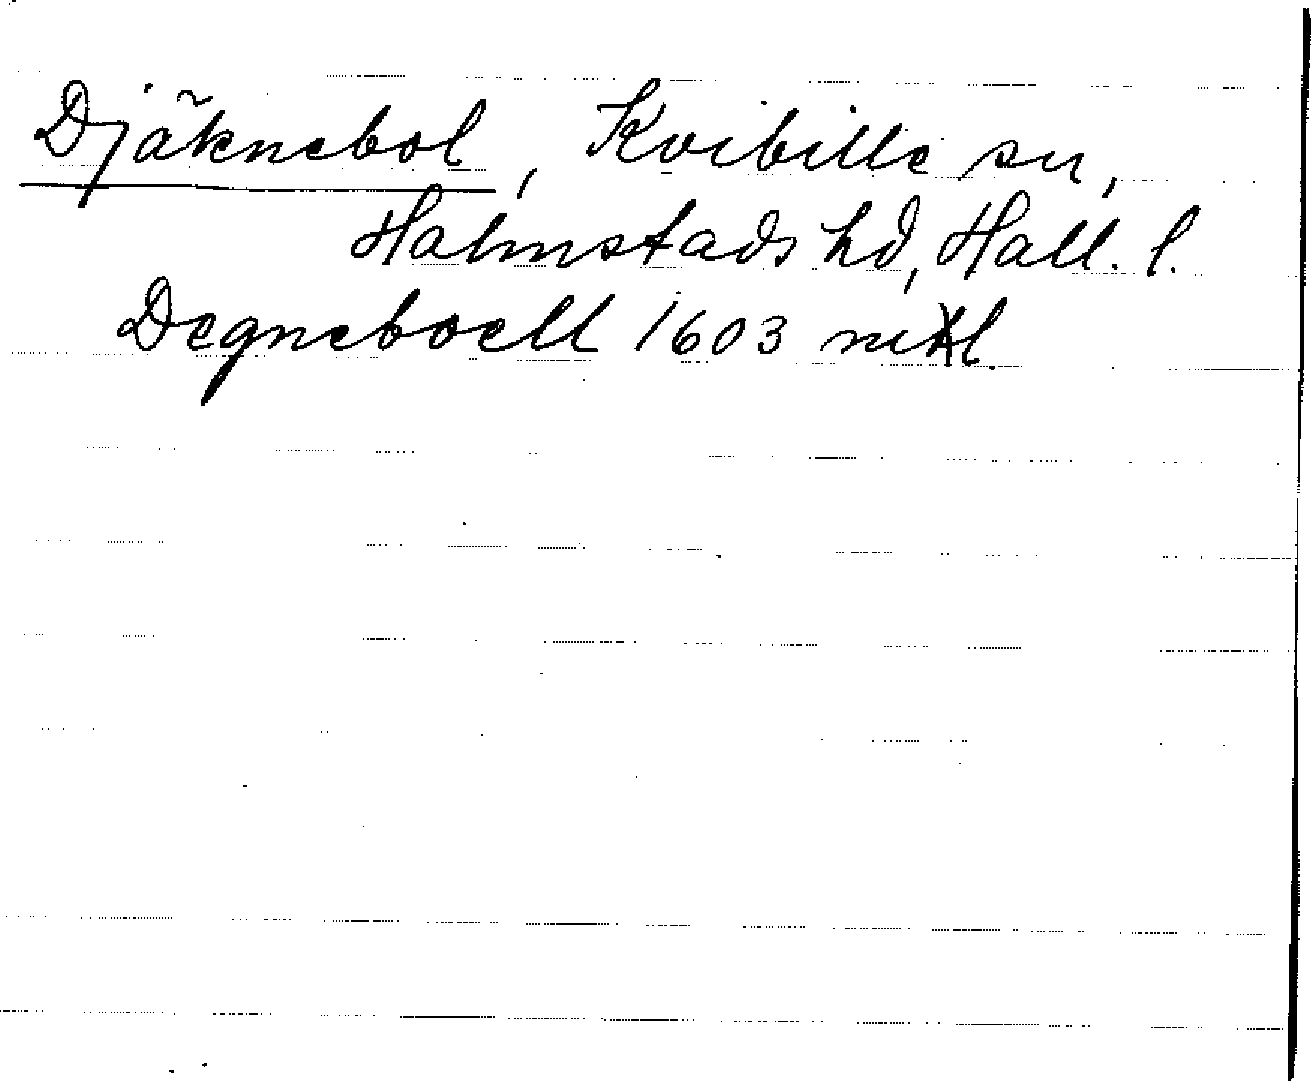 Djäknebol, Kvibille sn,
Halmstads hd, Hall. l.
Degneboell 1603